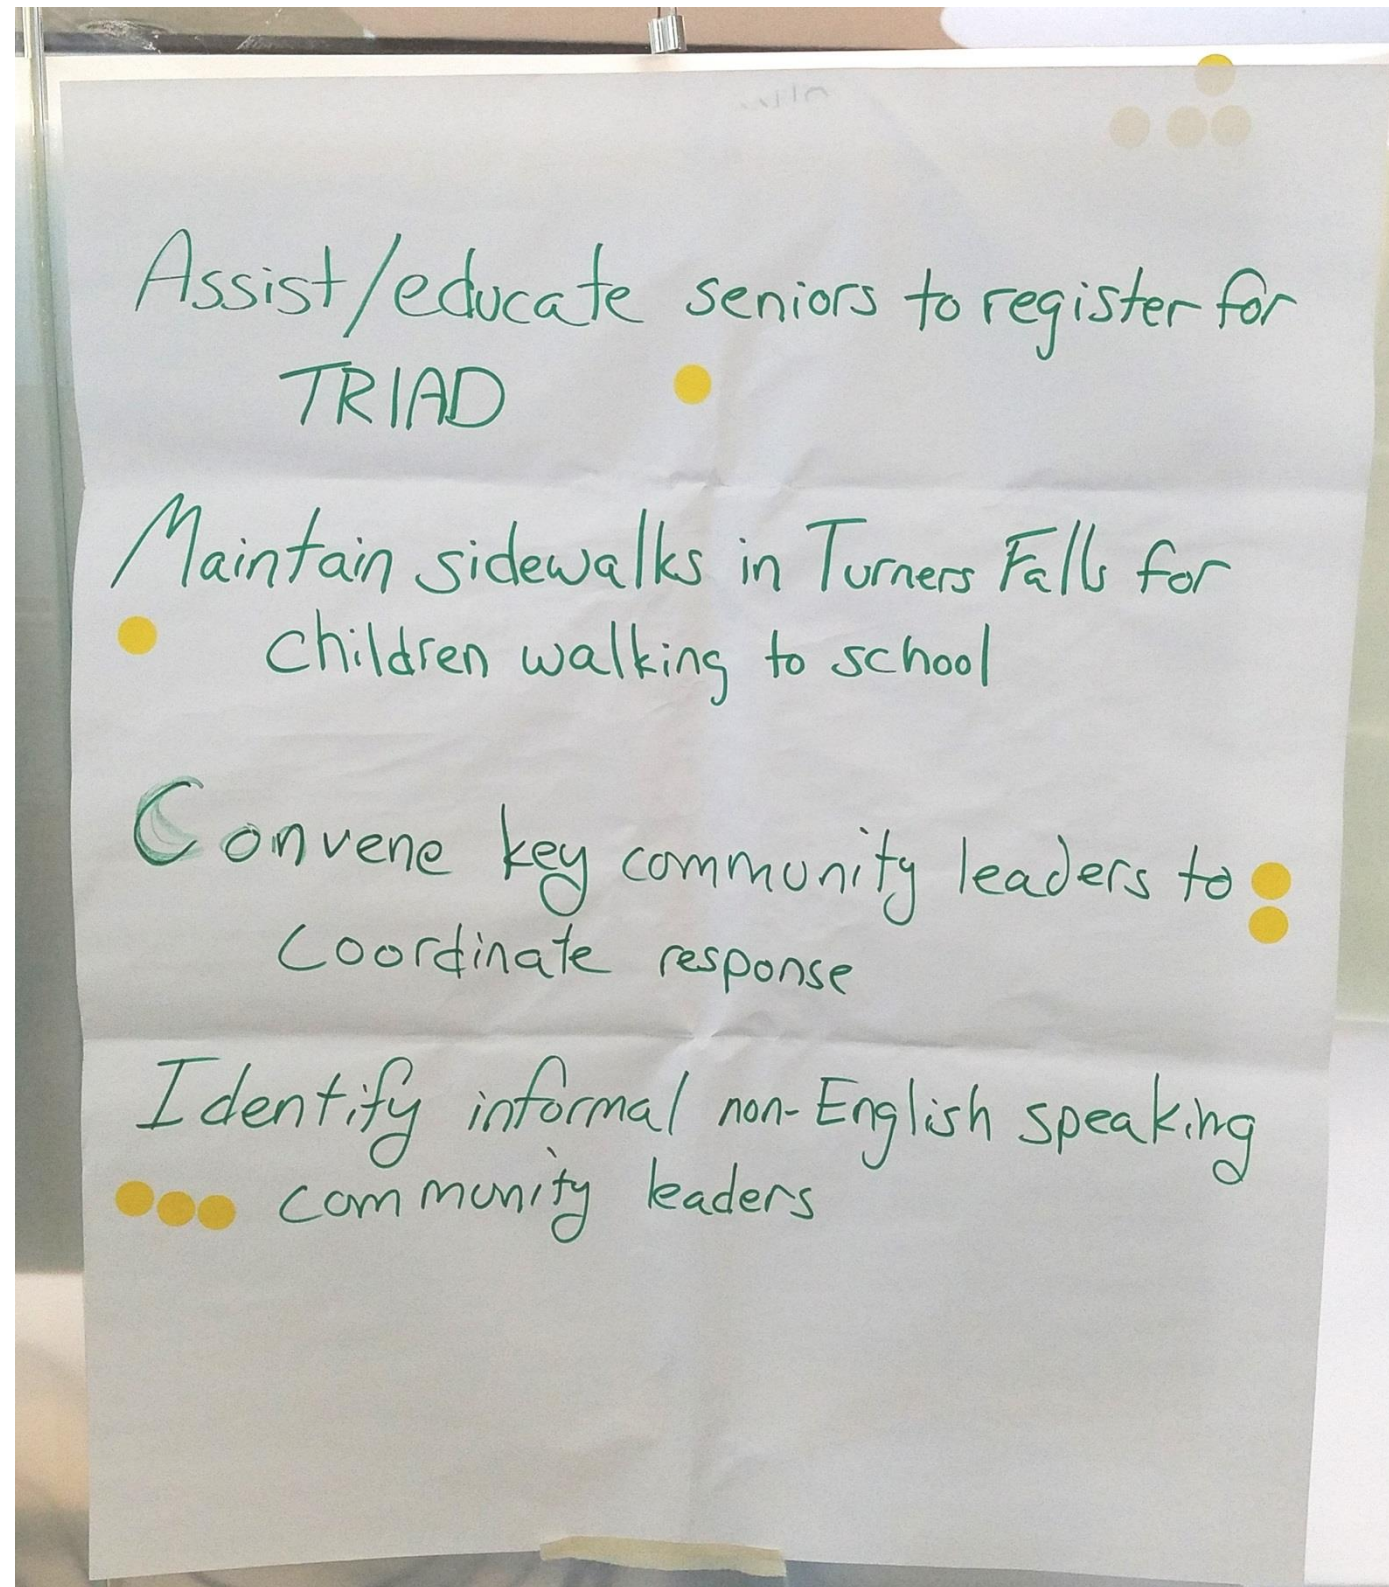 Assist/educate seniors to register for
TRIAD
Maintain sidewalks in Turners Falls for
children walking to school
Convene key community leaders to
coordinate response
Identify informal non-English speaking
community leaders